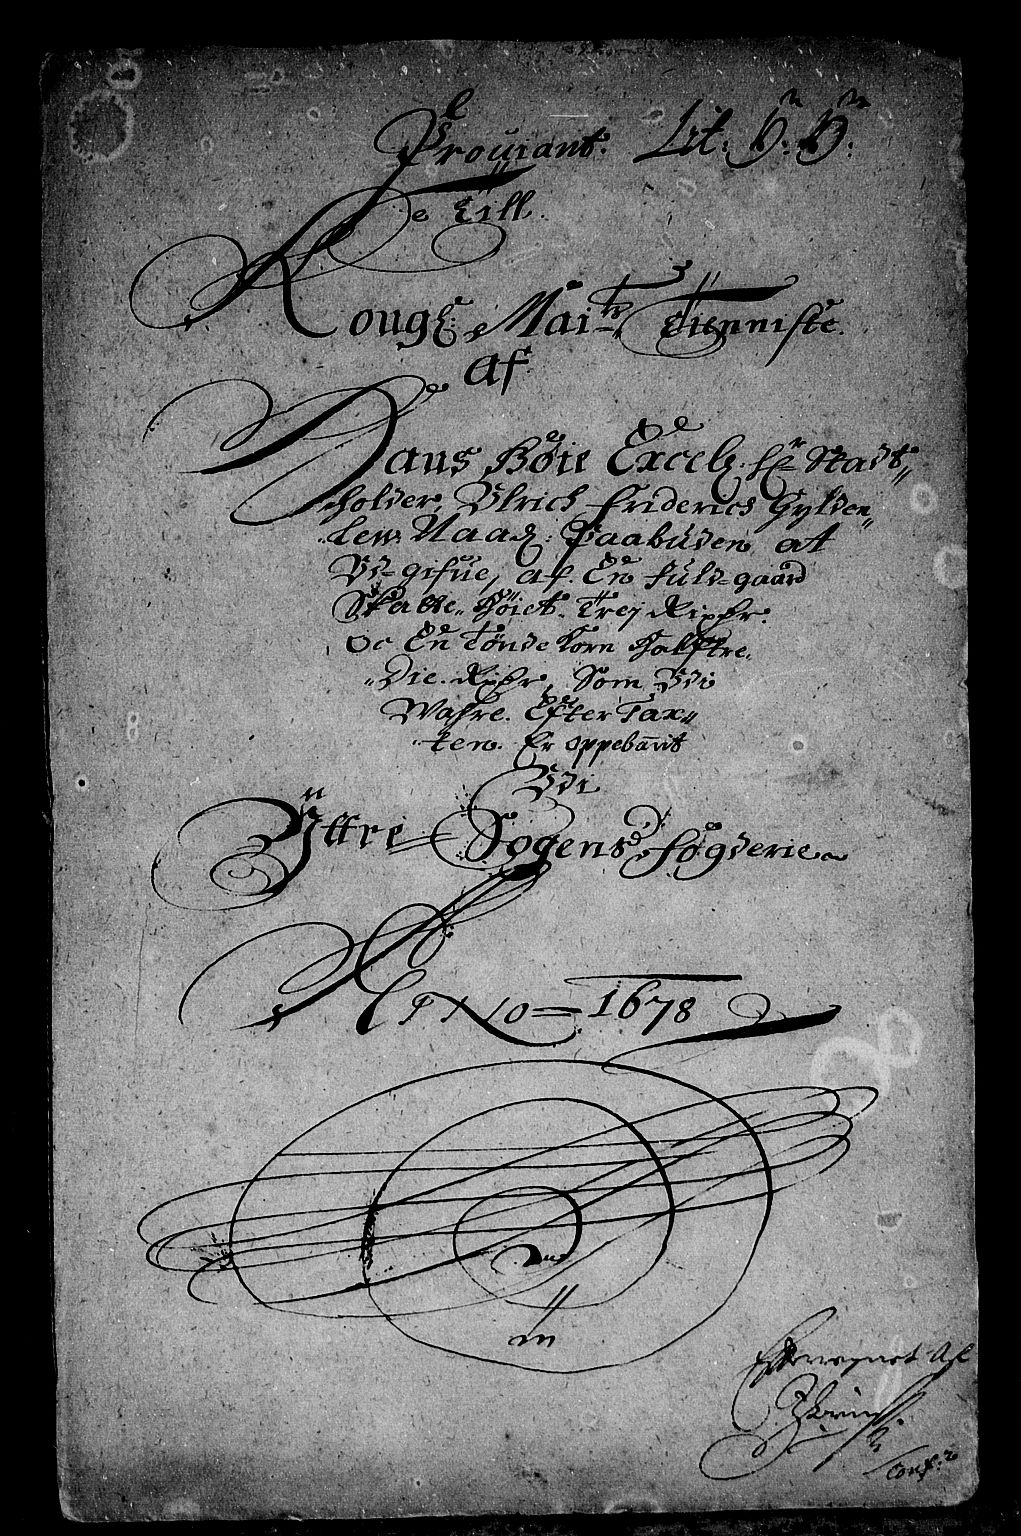 Prouiant. Lit: H: H:
Till
Kongl: Maits Tienniste.
af
Hans Høie Excelz: Hr Stadt
holder, Ulrich Friderics Gylden
lew. Naadz: Paabuden at
Ud-gifue, af En fuld-gaard
Skatte Høiet. Trej Rixdr.
Oc En Tønde Korn halftre
die. Rixdr. Som Udi
Wahre. Efter Tax
ten. Er oppebarit
Udi
Yttre Sogens Fogderie
ANNO 1678